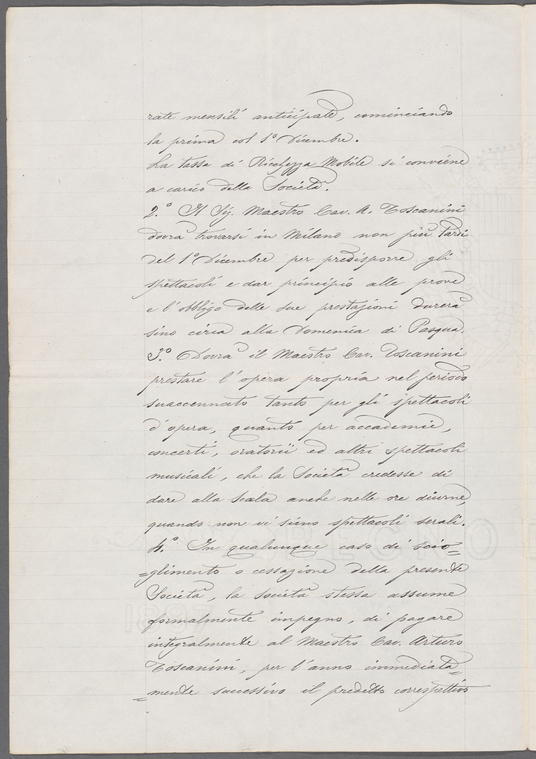 rate mensili anticipate, cominciando
la prima col 1º Dicembre.
La tassa di Ricchezza Mobile si conviene
a carico della Società.
2.º Il Sig. Maestro Cav. A. Toscanini
dovrà trovarsi in Milano non più tardi
del 1º Dicembre per predisporre gli
spettacoli e dar principio alle prove
e l'obbligo delle sue prestazioni durerà
sino circa alla Domenica di Pasqua.
3.º Dovrà il Maestro Cav. Toscanini
prestare l'opera propria nel periodo
suaccennato tanto per gli spettacoli
d'opera, quanto per accademie,
concerti, oratorii ed altri spettacoli
musicali, che la Società credesse di
dare alla Scala anche nelle ore diurne,
quando non vi siano spettacoli serali.
4.º In qualunque caso di scio=
=glimento o cessazione della presente
Società, la società stessa assume
formalmente impegno, di pagare
integralmente al Maestro Cav. Arturo
Toscanini, per l'anno immediata=
=mente successivo il predetto correspettivo